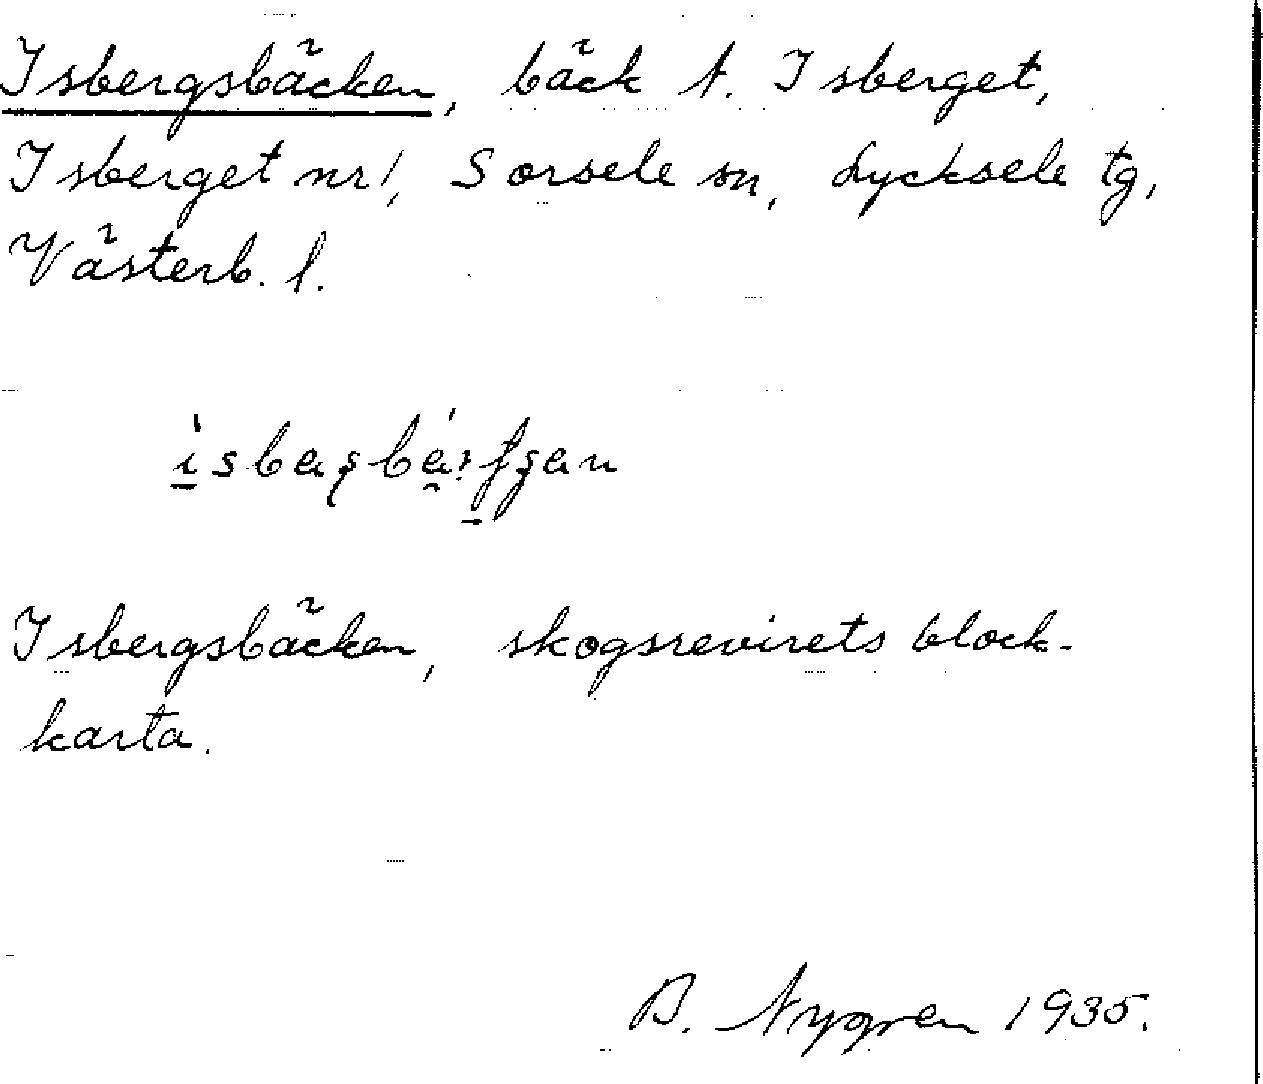 Isbergsbäcken, bäck N. Isberget,
Isberget nr 1, Sorsele sn, Lycksele tg,
Västerb. l.
Isbergsbäcken, skogsrevirets block-
karta.
B. Nygren 1935.